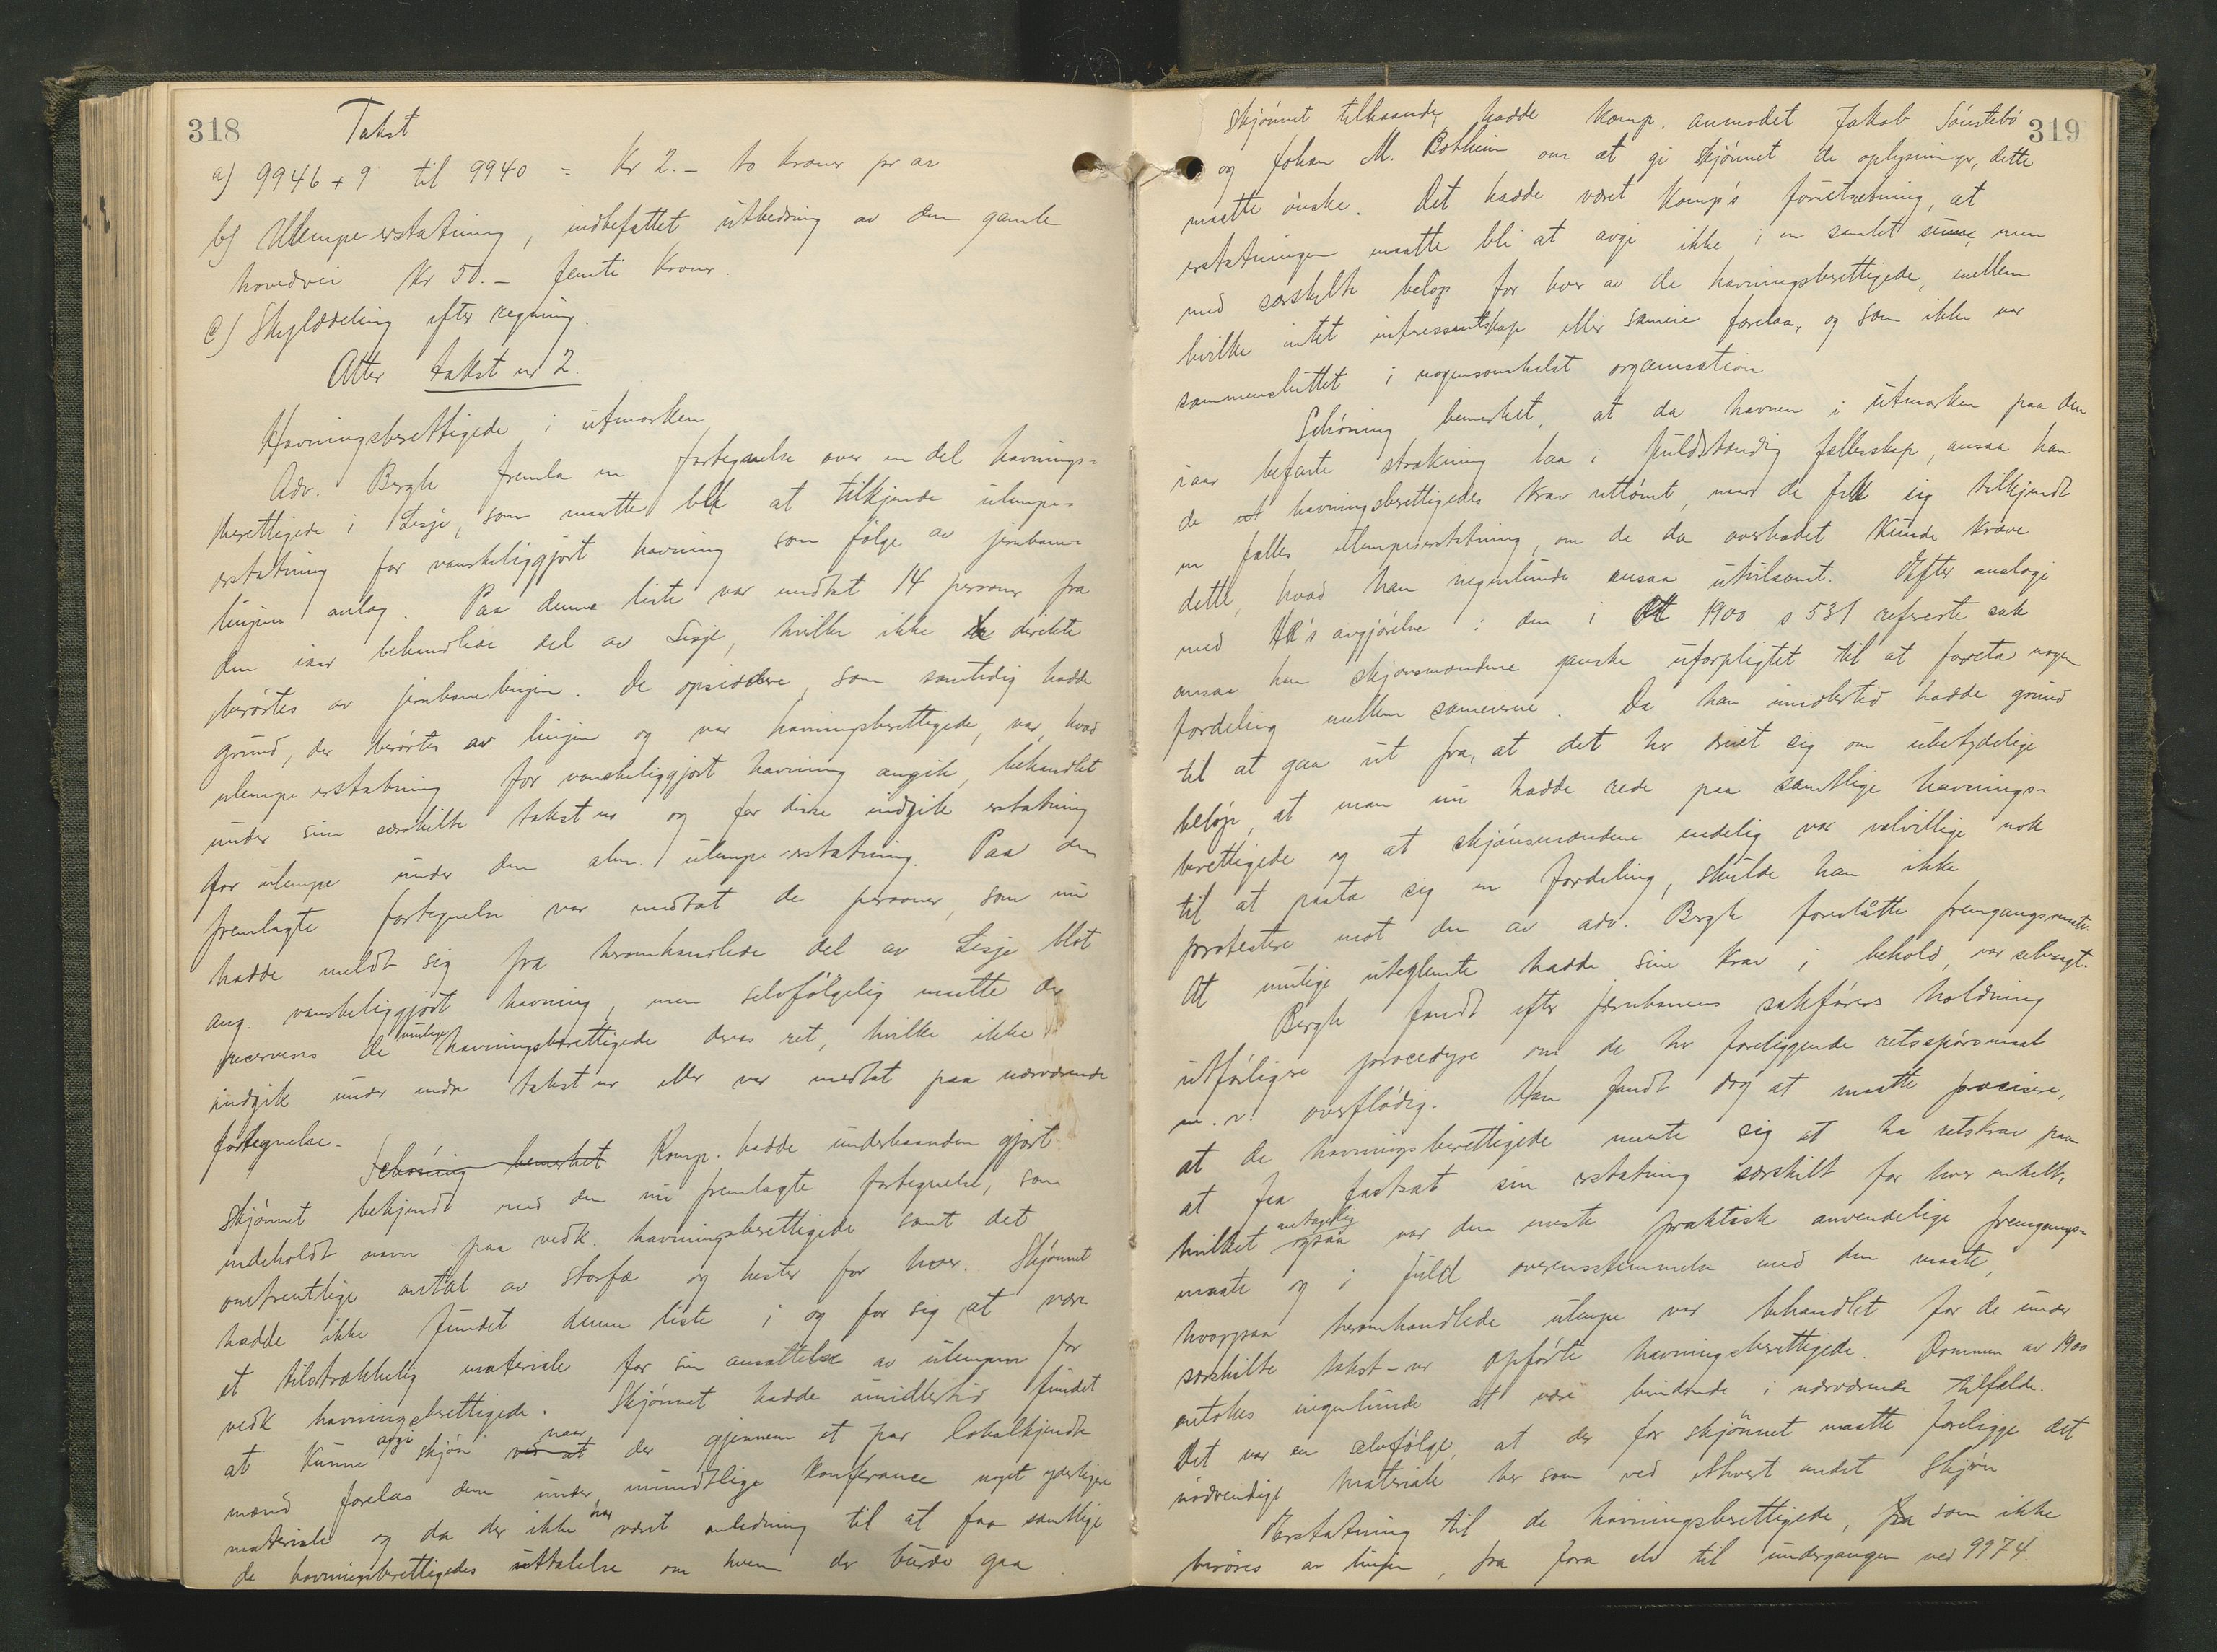 318
Takst
a) 9946 + 9 til 9940 = Kr 2.- to kroner pr ar
b) Ulempeerstatning, indbefattet utbedring av den gamle
hovedvei Kr 50.- femti kroner.
c) Skylddeling efter regning.
Atter takst nr 2.
Havningsberettigede i utmarken
Adv. Bergh fremla en fortegnelse over en del havnings-
berettigede i Lesje, som maatte bli at tilkjende ulempe-
erstatning for vanskeliggjort havning som følge av jernbane-
linjens anlæg. Paa denne liste var medtat 14 personer fra
den iaar behandlede del av Lesje, hvilke ikke direkte
berørtes av jernbanelinjen. De opsiddere, som samtidig hadde
grund, der berørtes av linjen og var havningsberettigede, var, hvad
ulempeerstatning for vanskeliggjort havning angik, behandlet
under sine særskilte takst nr og for disse indgik erstatning
for ulempe under den alm. ulempe-erstatning. Paa den
fremlagte fortegnelse var medtat de personer, som nu
hadde meldt sig fra heromhandlede del av Lesje blot
ang. vanskeliggjort havning, men selvfølgelig maatte der
reserveres de mulige havningsberettigede deres ret, hvilke ikke
indgik under andre takst nr eller var medtat paa nærværende
fortegnelse.
Schøning bemerket Komp. hadde underhaanden gjort
skjønnet bekjendt med den nu fremlagte fortegnelse, som
indeholdt navn paa vedk. havningsberettigede samt det
omtrentlige antal av storfæ og hester for hver. Skjønnet
hadde ikke fundet denne liste i og for sig at være
et tilstrækkelig materiale for sin ansættelse av ulempen for
vedk havningsberettigede. Skjønnet hadde imidlertid fundet
at kunne avgi skjøn ved at naar der gjennem et par lokalkjendte
mænd forelaa dem under mundtlige konferance noget yderligere
materiale og da der ikke har været anledning til at faa samtlige
de havningsberettigedes uttalelse om hvem der burde gaa
319
skjønnet tilhaande, hadde Komp. anmodet Jakob Sønstebø
og Johan M. Botheim om at gi skjønnet de oplysninger, dette
maatte ønske. Det hadde været Komp's forutsætning, at
erstatningen maatte bli at avgi ikke i en samlet sum, men
med særskilte beløp for hver av de havningsberettigede, mellem
hvilke intet interessentskap eller sameie forelaa, og som ikke var
sammensluttet i nogensomhelst organisation
Schøning bemerket, at da havnen i utmarken paa den
iaar befarte strækning laa i fuldstændig fællesskap, ansaa han
de havningsberettigedes krav uttømt, naar de fik sig tilkjendt
en fælles ulempeerstatning, om de da overhodet kunde kræve
dette, hvad han ingenlunde ansaa utvilsomt. Efter analogi
med HR's avgjørelse i den i Rt 1900 s 531 refererte sak
ansaa han skjønsmændene ganske uforpligtet til at foreta nogen
fordeling mellem sameierne. Da han imidlertid hadde grund
til at gaa ut fra, at det her dreiet sig om ubetydelige
beløp, at man nu hadde rede paa samtlige havnings-
berettigede og at skjønsmændene endelig var velvillige nok
til at paata sig en fordeling, skulde han ikke
protestere mot den av adv. Bergh foreslåtte fremgangsmaate.
At mulige uteglemte hadde sine krav i behold, var selvsagt.
Bergh fandt efter jernbanens sakførers holdning
utførligere procedyre om de her foreliggende retsspørsmaal
m. v. overflødig. Han fandt dog at maatte præcisere,
at de havningsberettigede mente sig at ha retskrav paa
at faa fastsat sin erstatning særskilt for hver enkelt,
hvilket ogsaa antagelig var den mest praktisk anvendelige fremgangs-
maate og i fuld overensstemmelse med den maate,
hvorpaa heromhandlede ulempe var behandlet for de under
særskilte takst-nr opførte havningsberettigede. Dommen av 1900
antokes ingenlunde at være bindende i nærværende tilfælde.
Det var en selvfølge, at der for skjønnet maatte foreligge det
nødvendige materiale her som ved ethvert andet skjøn
Erstatning til de havningsberettigede, som ikke
berøres av linjen, fra Jora elv til undergangen ved 9974.